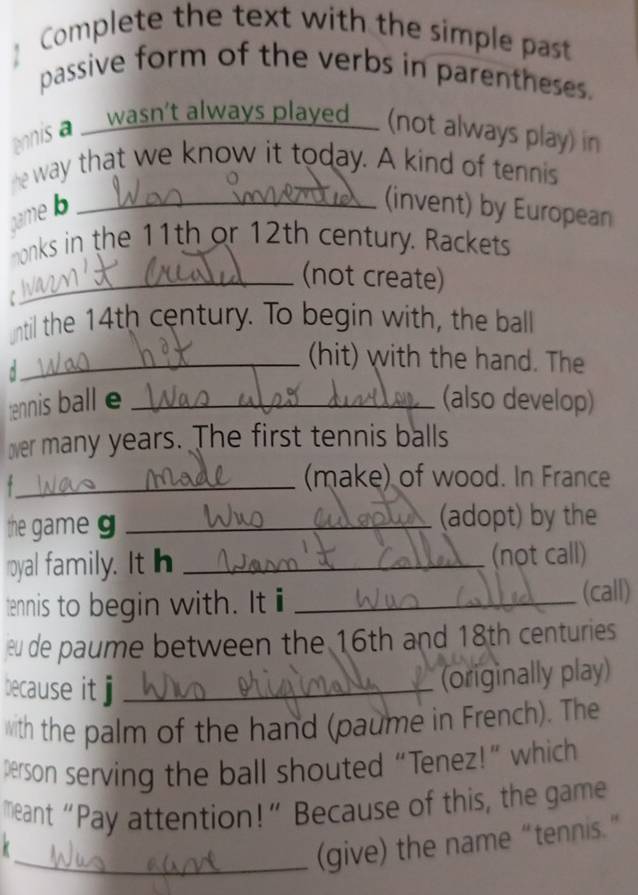 Complete the text with the simple past
passive form of the verbs in parentheses.
ennis a wasn't always played (not always play) in
he way that we know it today. A kind of tennis
game b Was invented (invent) by European
monks in the 11th or 12th century. Rackets
c warn't created (not create)
until the 14th century. To begin with, the ball
d Was hit (hit) with the hand. The
tennis ball e Was also develop (also develop)
over many years. The first tennis balls
f Was made (make) of wood. In France
the game g Was adopted (adopt) by the
royal family. It h wasn't called (not call)
tennis to begin with. It i was called (call)
jeu de paume between the 16th and 18th centuries
because it j Was originally played (originally play)
with the palm of the hand (paume in French). The
person serving the ball shouted "Tenez!" which
meant "Pay attention!" Because of this, the game
k Was gave (give) the name "tennis."